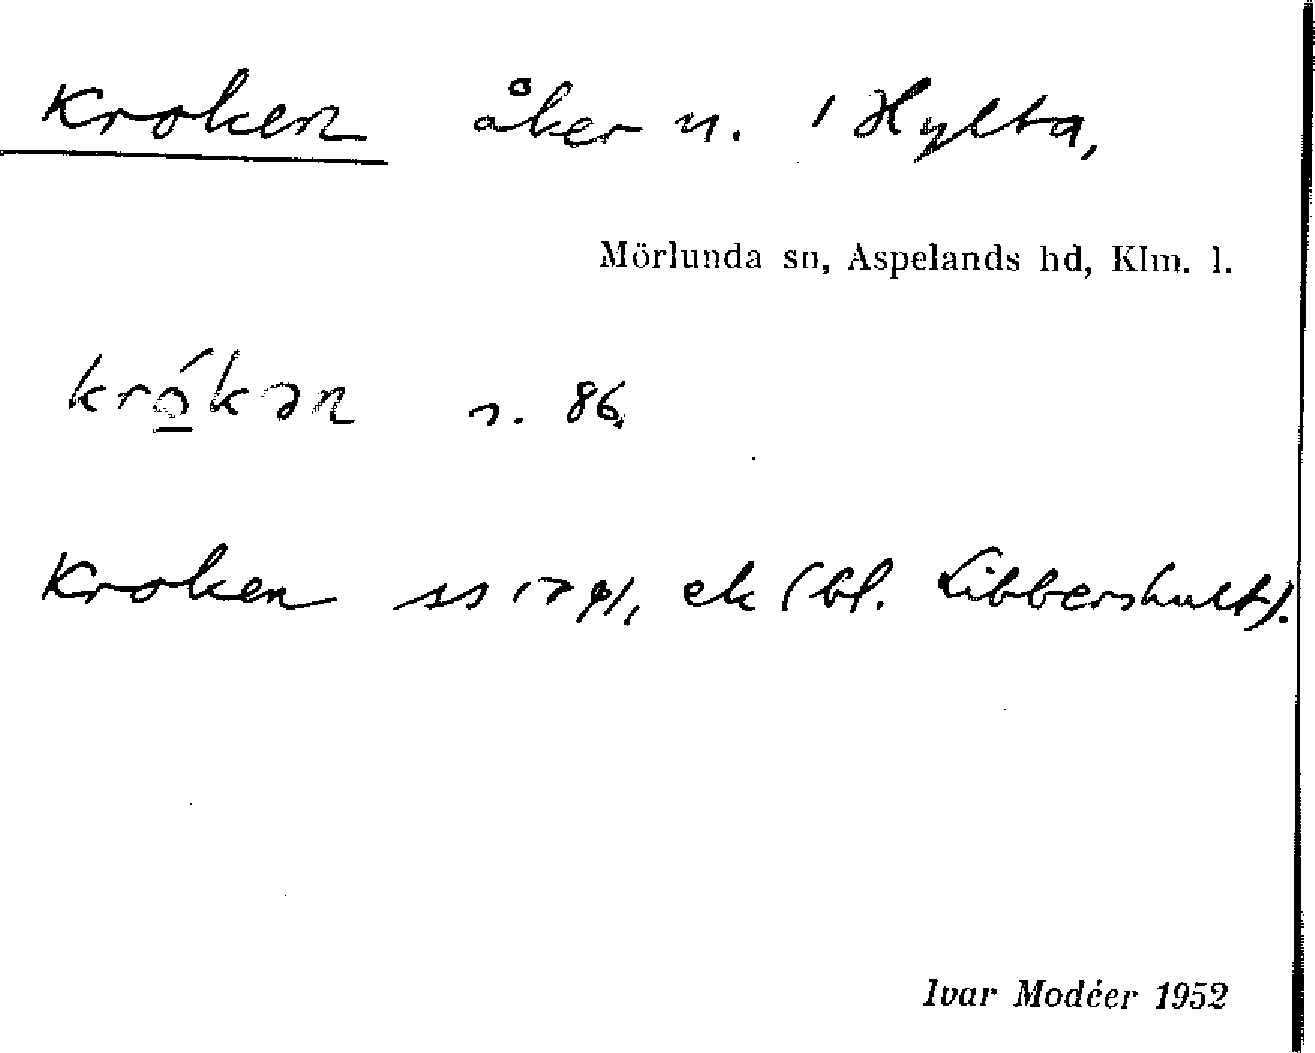 Kroken åker n. i Hylta,
Mörlunda sn, Aspelands hd, Klm. l.
kró̲kən s. 86.
Kroken ek (bl. Libbershult).
Ivar Modéer 1952